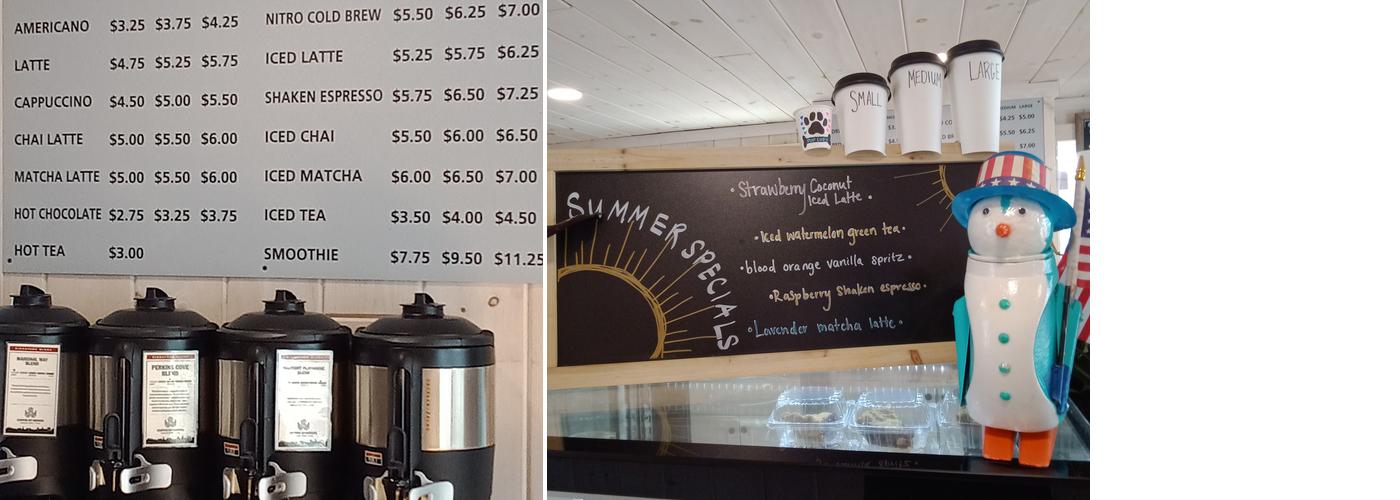 AMERICANO $3.25 $3.75 $4.25
LATTE $4.75 $5.25 $5.75
CAPPUCCINO $4.50 $5.00 $5.50
CHAI LATTE $5.00 $5.50 $6.00
MATCHA LATTE $5.00 $5.50 $6.00
HOT CHOCOLATE $2.75 $3.25 $3.75
HOT TEA $3.00
NITRO COLD BREW $5.50 $6.25 $7.00
ICED LATTE $5.25 $5.75 $6.25
SHAKEN ESPRESSO $5.75 $6.50 $7.25
ICED CHAI $5.50 $6.00 $6.50
ICED MATCHA $6.00 $6.50 $7.00
ICED TEA $3.50 $4.00 $4.50
SMOOTHIE $7.75 $9.50 $11.25
MARGINAL WAY
BLEND
PERKINS COVE
BLEND
SMALL
MEDIUM
LARGE
MEDIUM LARGE
$4.25 $5.00
$5.50 $6.25
$7.00
SUMMER SPECIALS
• Strawberry Coconut
Iced Latte •
• Iced watermelon green tea •
• blood orange vanilla spritz •
• Raspberry Shaken espresso •
• Lavender matcha latte •